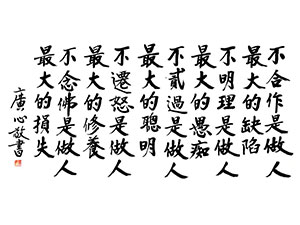 不合作是做人
最大的缺陷
不明理是做人
最大的愚痴
不貳過是做人
最大的聰明
不遷怒是做人
最大的修養
不念佛是做人
最大的損失
廣心敬書